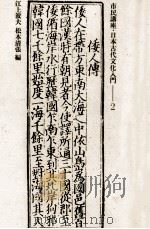 市民講座・日本古代文化入門——2
倭人傳
倭人在帶方東南大海之中依山㠀為國邑舊百
餘國漢時有朝見者今使譯所通三十國從郡至
倭循海岸水行歷韓國乍南乍東到其北岸狗邪
韓國七千餘里始度一海千餘里至對國其大
江上波夫 松本清張 編